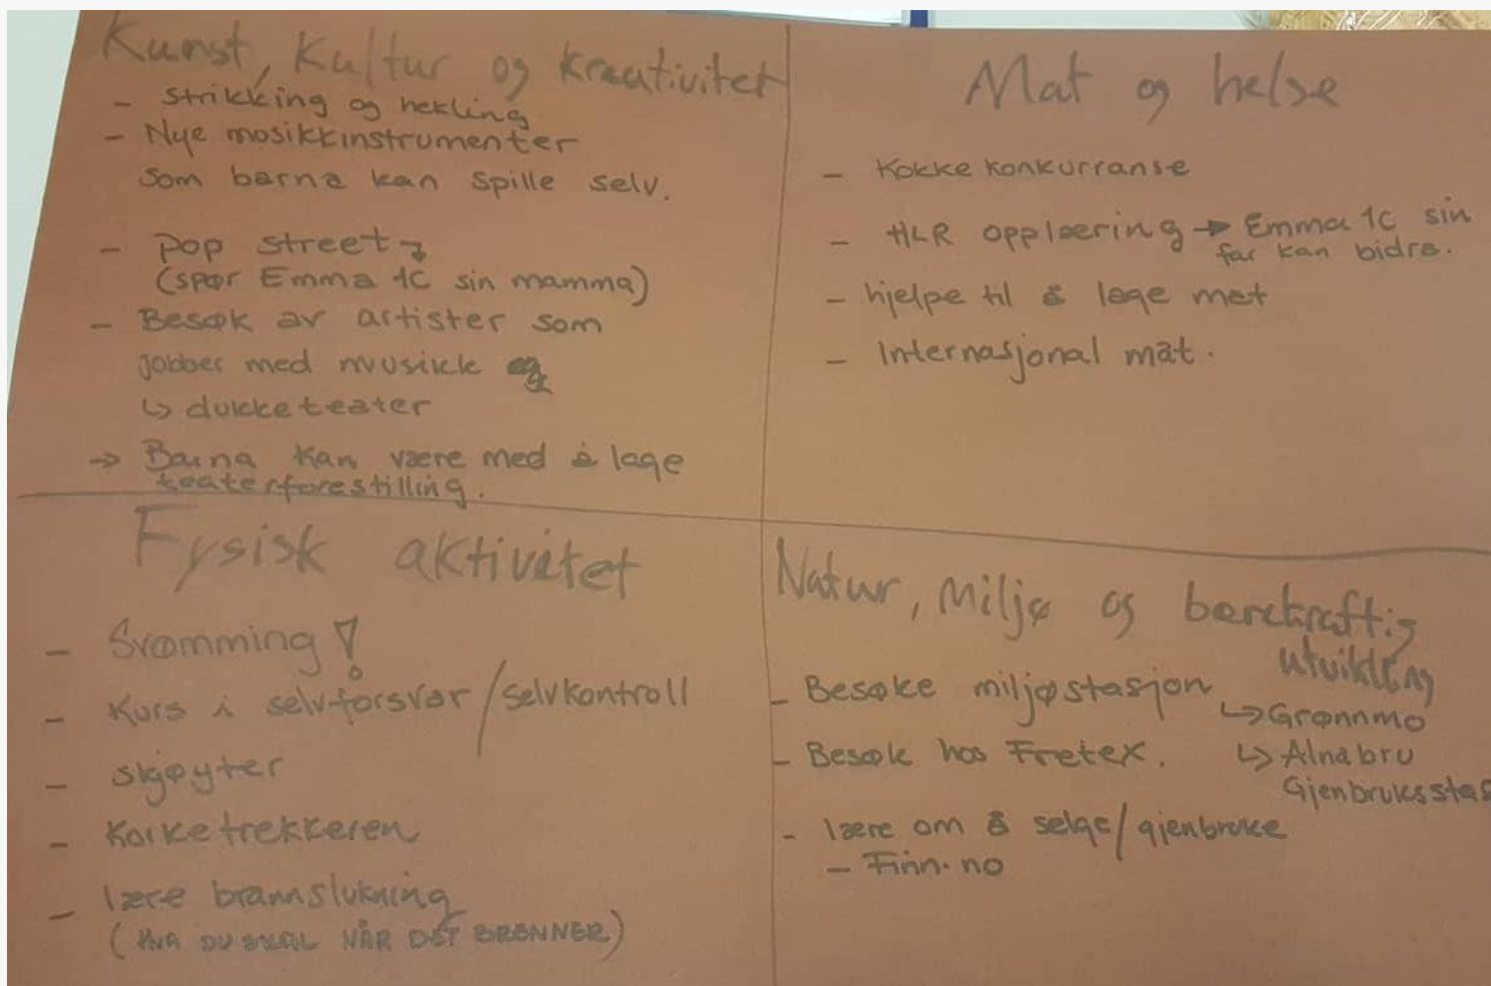 Kunst, Kultur og kreativitet
- Strikking og hekling
- Nye mosikkinstrumenter
som barna kan spille selv.
- pop street
(spør Emma 1C sin mamma)
- Besøk av artister som
jobber med musikk
↳ dukketeater
→ Barna kan være med å lage
teaterforestilling.
Mat og helse
- Kokke konkurranse
- HLR opplæring → Emma 1c sin
far kan bidra.
- hjelpe til å lage mat
- Internasjonal mat.
Fysisk aktivitet
- Svømming!
- Kurs i selvforsvar/selvkontroll
- skjøyter
- Korketrekkeren
- lære brannslukning
(HVA DU SKAL NÅR DET BRENNER)
Natur, miljø og bærekraftig
utvikling
- Besøke miljøstasjon
↳ Grønnmo
- Besøk hos Fretex.
↳ Alnabru
Gjenbruksstas
- lære om å selge/gjenbruke
- Finn.no